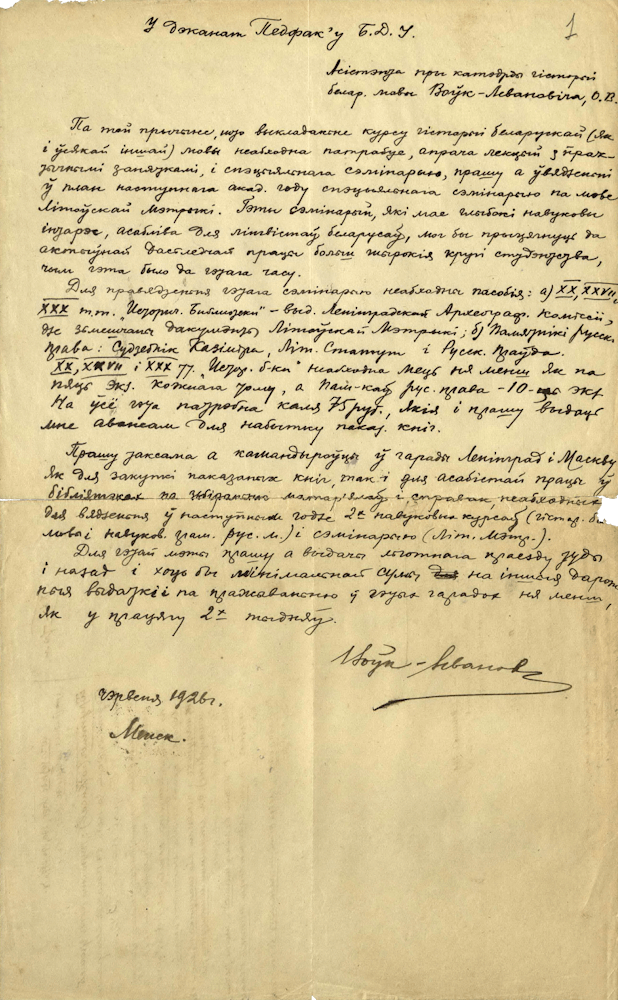 1
У дэканат Педфак'у Б.Д.У.
Асістэнта пры катэдры гісторыі
белар. мовы Воўк-Левановіча, О.В.
Па той прычыне, што выкладаньне курсу гісторыі беларускай (як
і ўсякай іншай) мовы неабходна патрабуе, апрача лекцый з прак-
тычнымі заняткамі, і спэцыяльнага сэмінарыю, прашу а ўвядзеньні
ў план наступнага акад. году спэцыяльнага сэмінарыю па мове
Літоўскай Мэтрыкі. Гэты сэмінарый, які мае глыбокі навуковы
інтарэс, асабліва для лінгвістаў беларусаў, мог бы прыцягнуць да
актыўнай дасьледчай працы больш шырокія кругі студэнцтва,
чым гэта было да гэтага часу.
Для правядзеньня гэтага сэмінарыю неабходны пасобія: а) XX, XXVII,
XXX т.т. "Историч. Библиотеки" – выд. Ленінградскай Археограф. Комісіі,
дзе зьмешчаны дакумэнты Літоўскай Мэтрыкі; б) Памятнікі русск.
права: Судзебнік Казіміра, Літ. Статут і Русск. Праўда.
XX, XXVII і XXX тт. "Истор. б-ки" неабходна мець ня менш як па
пяць экз. кожнага тому, а Пам-каў рус. права – 10 экз.
На ўсё гэта патрэбна каля 75 руб., якія і прашу выдаць
мне авансам для набытку показ. кніг.
Прашу таксама а камандыроўцы ў гарады Ленінград і Маскву
як для закупкі паказаных кніг, так і для асабістай працы ў
бібліятэках па зьбіраньню матар'ялаў і справак, неабходных
для вядзеньня ў наступным годзе 2х навуковых курсаў (гістор. бел.
мовы і навуков. грам. рус. м.) і сэмінарыю (Літ. Мэтр.).
Для гэтай мэты прашу а выдачы льготнага праезду туды
і назад і хоць бы мінімальнай сумы на іншыя дарож-
ныя выдаткі і па пражываньню ў гэтых гарадох ня менш,
як у працягу 2х тыдняў.
Воўк-Леванов
чэрвеня 1926 г.
Менск.